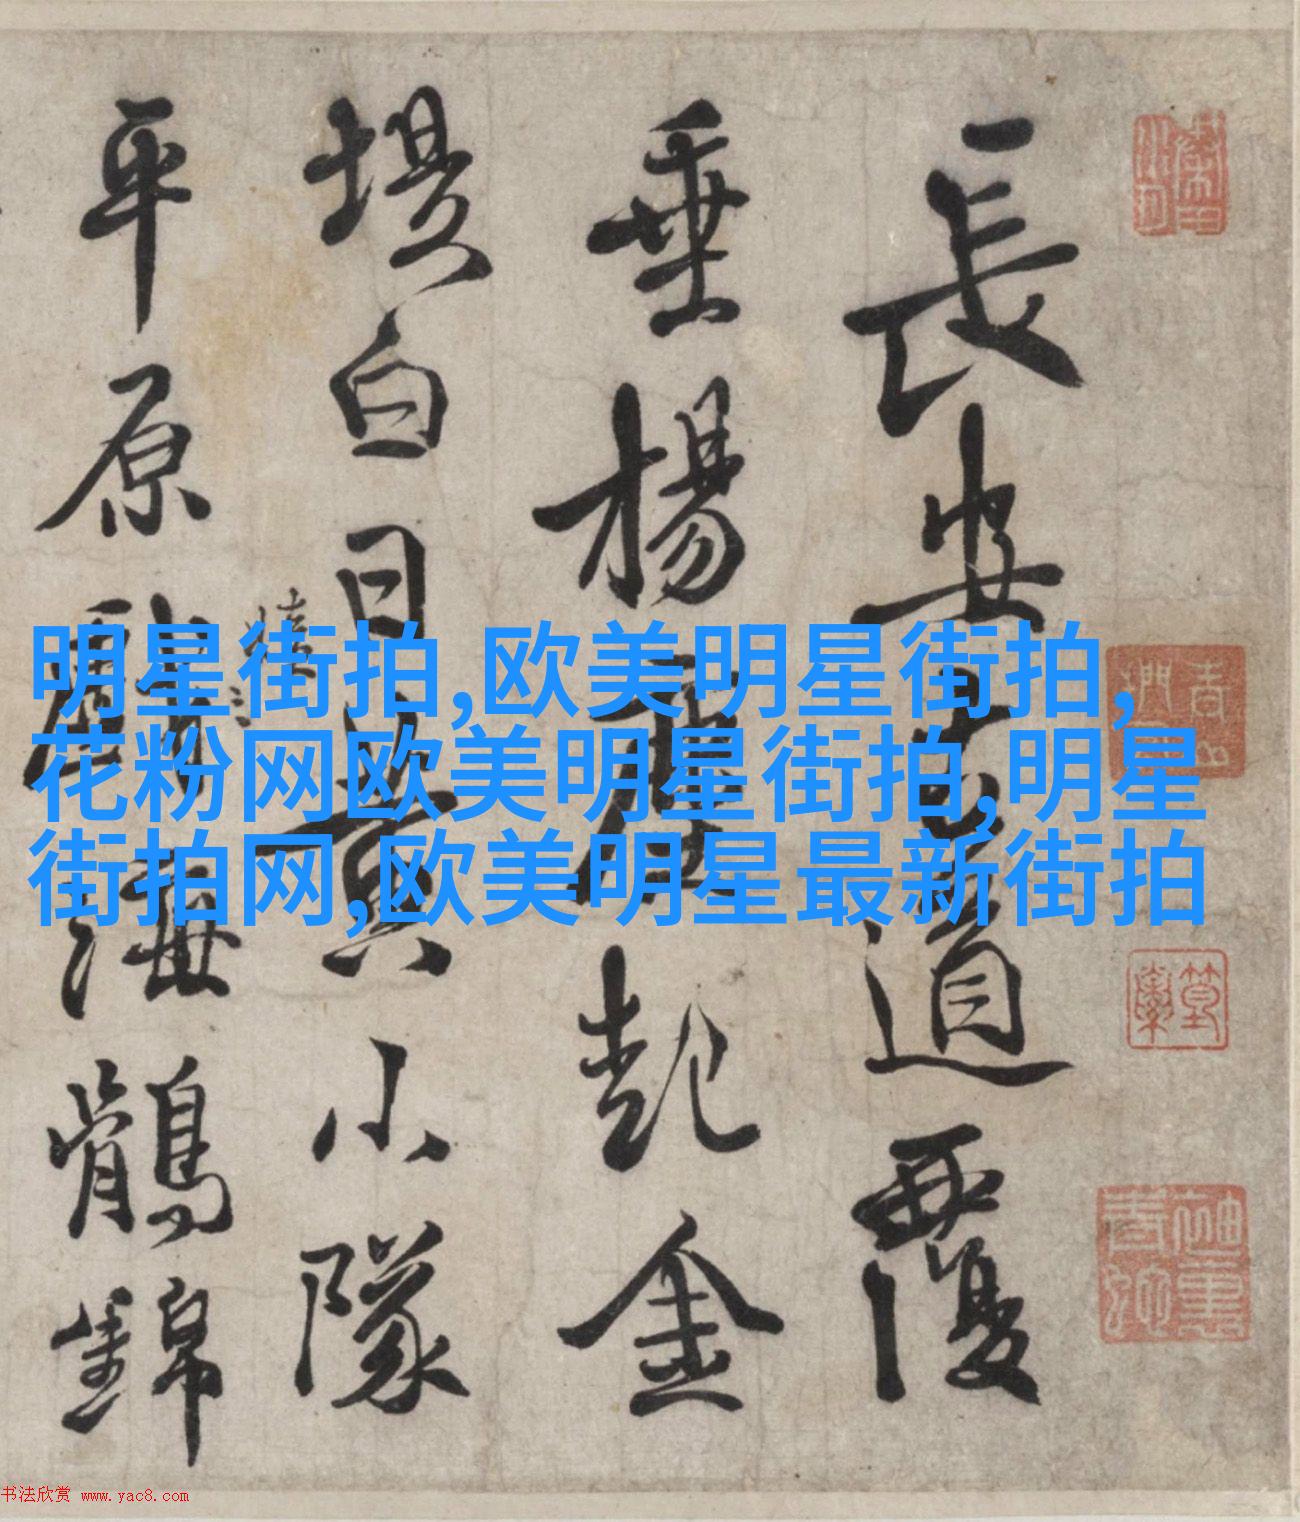 長安道覆
垂楊起金
堤白日黃小隊
平原海鶻錦
明星街拍,欧美明星街拍,
花粉网欧美明星街拍,明星
街拍网,欧美明星最新街拍
书法欣赏 www.yac8.com